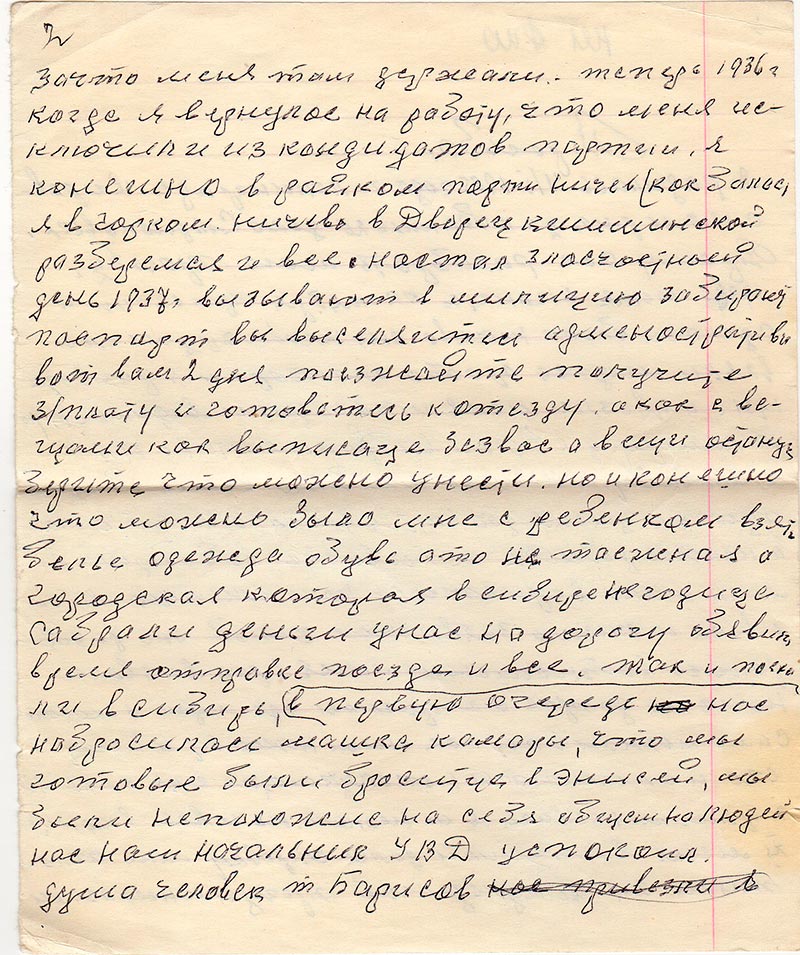 2
зачто меня там держали. теперь 1936 г
когда я вернулос на работу, что меня ис-
ключили из кондидатов партии. я
конешно в райком парти ничев (как Запас,
я в горком. ничево в Дворец Кшишинской
разберемся и все. настал злосчастный
день 1937г вызывают в милицию забирают
поспарт вы выселяитеи админостративн
вот вам 2 дня поезжайте получите
з/плату и готовтесь котезду. а как с ве-
щами как выписаце безвас а вещи останус
берите что можно унести. но и конешно
что можно было мне с ребенком взять
белье одежда обувь ото не таежная а
городская которая в сибире негодица
Сабрали деньги унас на дорогу обявили
время отправке поезда и все. так и поеха
ли в сибирь, в первую очередь на нос
набросилась машка камары, что мы
готовые были бросица в Энисей, мы
были непохожие на себя общем на людей
нас наш начальник УВД успокоил.
душа человек т Барисов нас привезли в